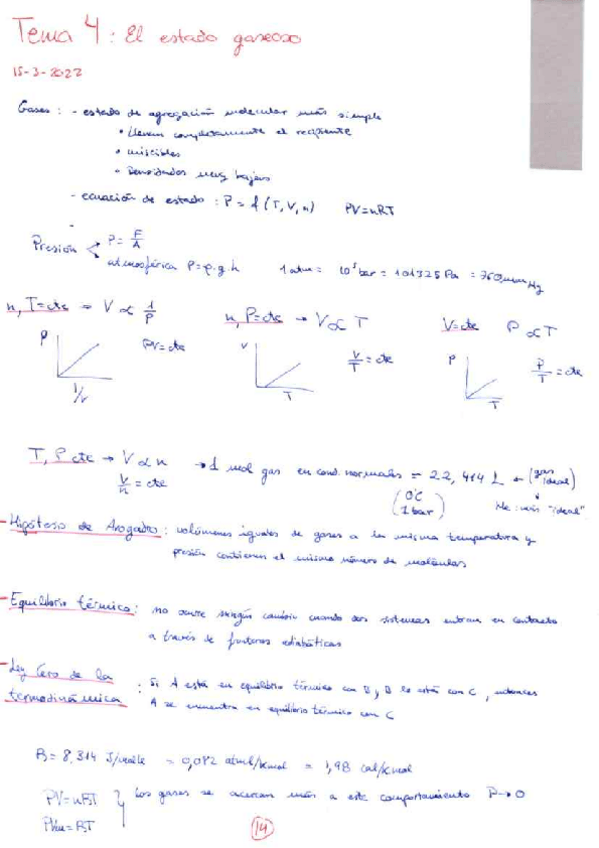 Tema 4: El estado gaseoso
15-3-2022
Gases: - estado de agregación molecular más simple
• llenan completamente el recipiente
• miscibles
• Densidades muy bajas
- ecuación de estado: P = f (T, V, n) PV=nRT
Presión P = F/A
atmosférica P=ρ.g.h 1 atm = 10⁵ bar = 101325 Pa = 760 mm Hg
n, T=cte → V ∝ 1/P n, P=cte → V ∝ T V=cte P ∝ T
P PV=cte V V/T = cte P P/T = cte
1/V T T
T, P cte → V ∝ n → 1 mol gas en cond. normales = 22,414 L (gas ideal)
V/n = cte (0°C 1 bar) He: más "ideal"
- Hipótesis de Avogadro: volúmenes iguales de gases a la misma temperatura y
presión contienen el mismo número de moléculas
- Equilibrio térmico: no ocurre ningún cambio cuando dos sistemas entran en contacto
a través de fronteras adiabáticas
- Ley Cero de la
termodinámica: Si A está en equilibrio térmico con B y B lo está con C, entonces
A se encuentra en equilibrio térmico con C
R = 8,314 J/molK = 0,082 atml/kmol = 1,98 cal/kmol
PV=nRT } Los gases se acercan más a este comportamiento P→0
PVm = RT
14